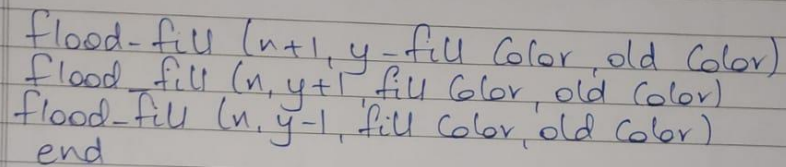 flood-fill (n+1, y-fill Color, old Color)
flood_fill (n, y+1, fill Color, old Color)
flood-fill (n, y-1, fill Color, old Color)
end